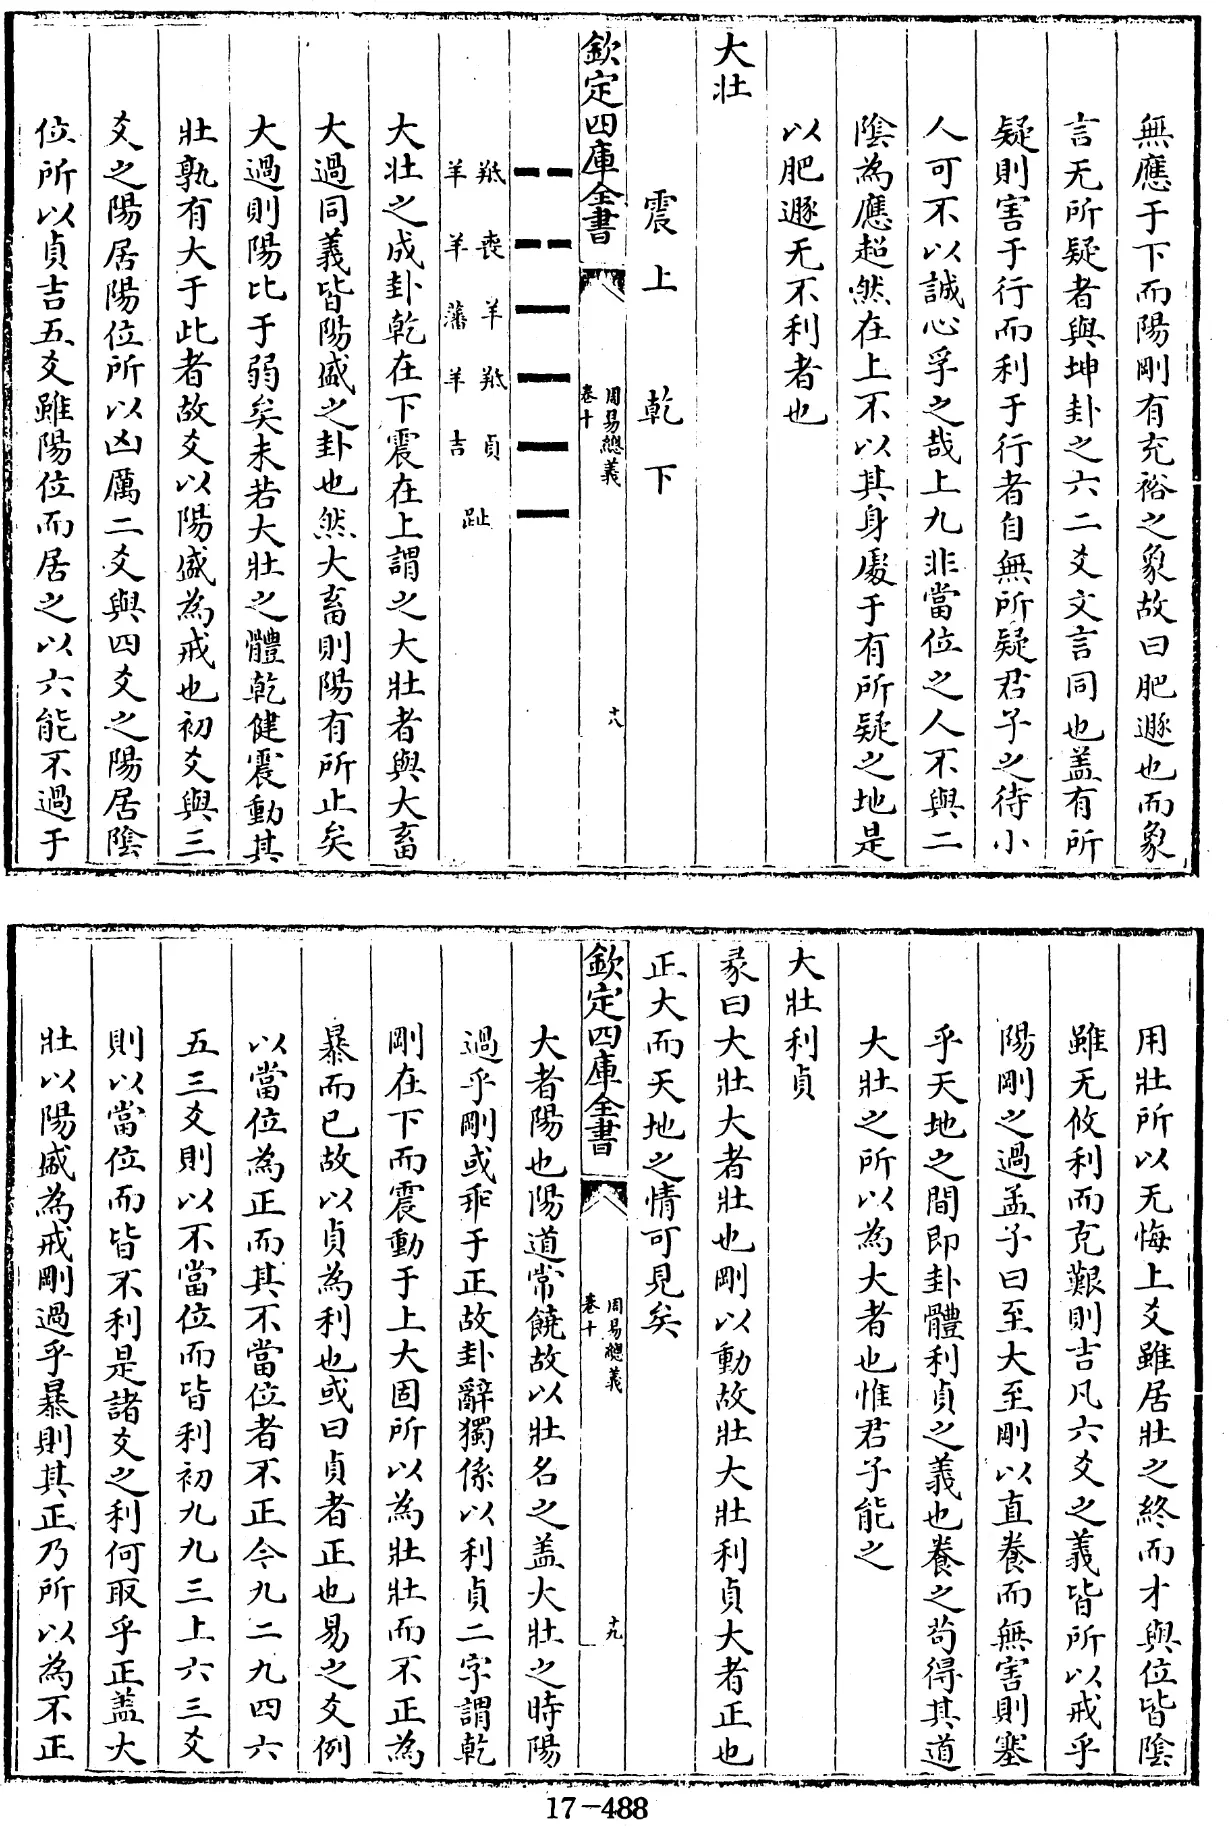 無應于下而陽剛有充裕之象故曰肥遯也而象
言无所疑者與坤卦之六二爻文言同也盖有所
疑則害于行而利于行者自無所疑君子之待小
人可不以誠心孚之哉上九非當位之人不與二
陰為應超然在上不以其身處于有所疑之地是
以肥遯无不利者也
大壯
震上 乾下
欽定四庫全書
周易總義
卷十
十八
羝 喪 羊 羝 貞 趾
羊 羊 藩 羊 吉
大壯之成卦乾在下震在上謂之大壯者與大畜
大過同義皆陽盛之卦也然大畜則陽有所止矣
大過則陽比于弱矣未若大壯之體乾健震動其
壯孰有大于此者故爻以陽盛為戒也初爻與三
爻之陽居陽位所以凶厲二爻與四爻之陽居陰
位所以貞吉五爻雖陽位而居之以六能不過于
用壯所以无悔上爻雖居壯之終而才與位皆陰
雖无攸利而克艱則吉凡六爻之義皆所以戒乎
陽剛之過孟子曰至大至剛以直養而無害則塞
乎天地之間即卦體利貞之義也養之苟得其道
大壯之所以為大者也惟君子能之
大壯利貞
彖曰大壯大者壯也剛以動故壯大壯利貞大者正也
正大而天地之情可見矣
欽定四庫全書
周易總義
卷十
十九
大者陽也陽道常饒故以壯名之盖大壯之時陽
過乎剛或乖于正故卦辭獨係以利貞二字謂乾
剛在下而震動于上大固所以為壯壯而不正為
暴而已故以貞為利也或曰貞者正也易之爻例
以當位為正而其不當位者不正今九二九四六
五三爻則以不當位而皆利初九九三上六三爻
則以當位而皆不利是諸爻之利何取乎正盖大
壯以陽盛為戒剛過乎暴則其正乃所以為不正
17-488